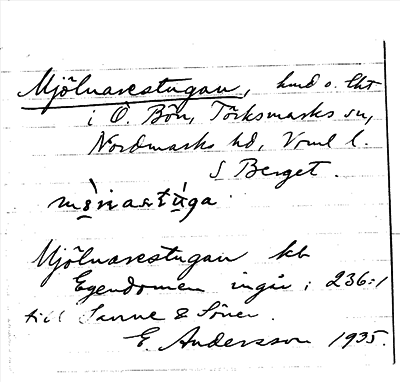 Mjölnarestugan, hmd o. lht
i Ö. Bön, Töcksmarks sn,
Nordmarks hd, Vrml l.
S Berget.
Mjölnarestugan kb
Egendomen ingår i 236:1
till Sanne & Söner.
E. Andersson 1935.